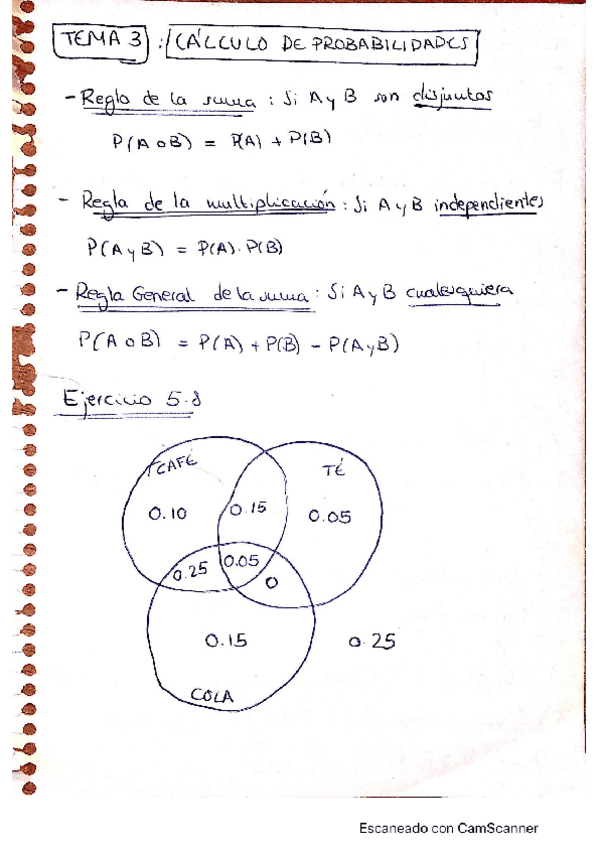 TEMA 3 : CÁLCULO DE PROBABILIDADES
- Regla de la suma : Si A y B son disjuntos
P(A o B) = P(A) + P(B)
- Regla de la multiplicación : Si A y B independientes
P(A y B) = P(A) · P(B)
- Regla General de la suma : Si A y B cualesquiera
P(A o B) = P(A) + P(B) - P(A y B)
Ejercicio 5.8
CAFÉ
TÉ
0.10
0.15
0.05
0.25
0.05
0
0.15
0.25
COLA
Escaneado con CamScanner